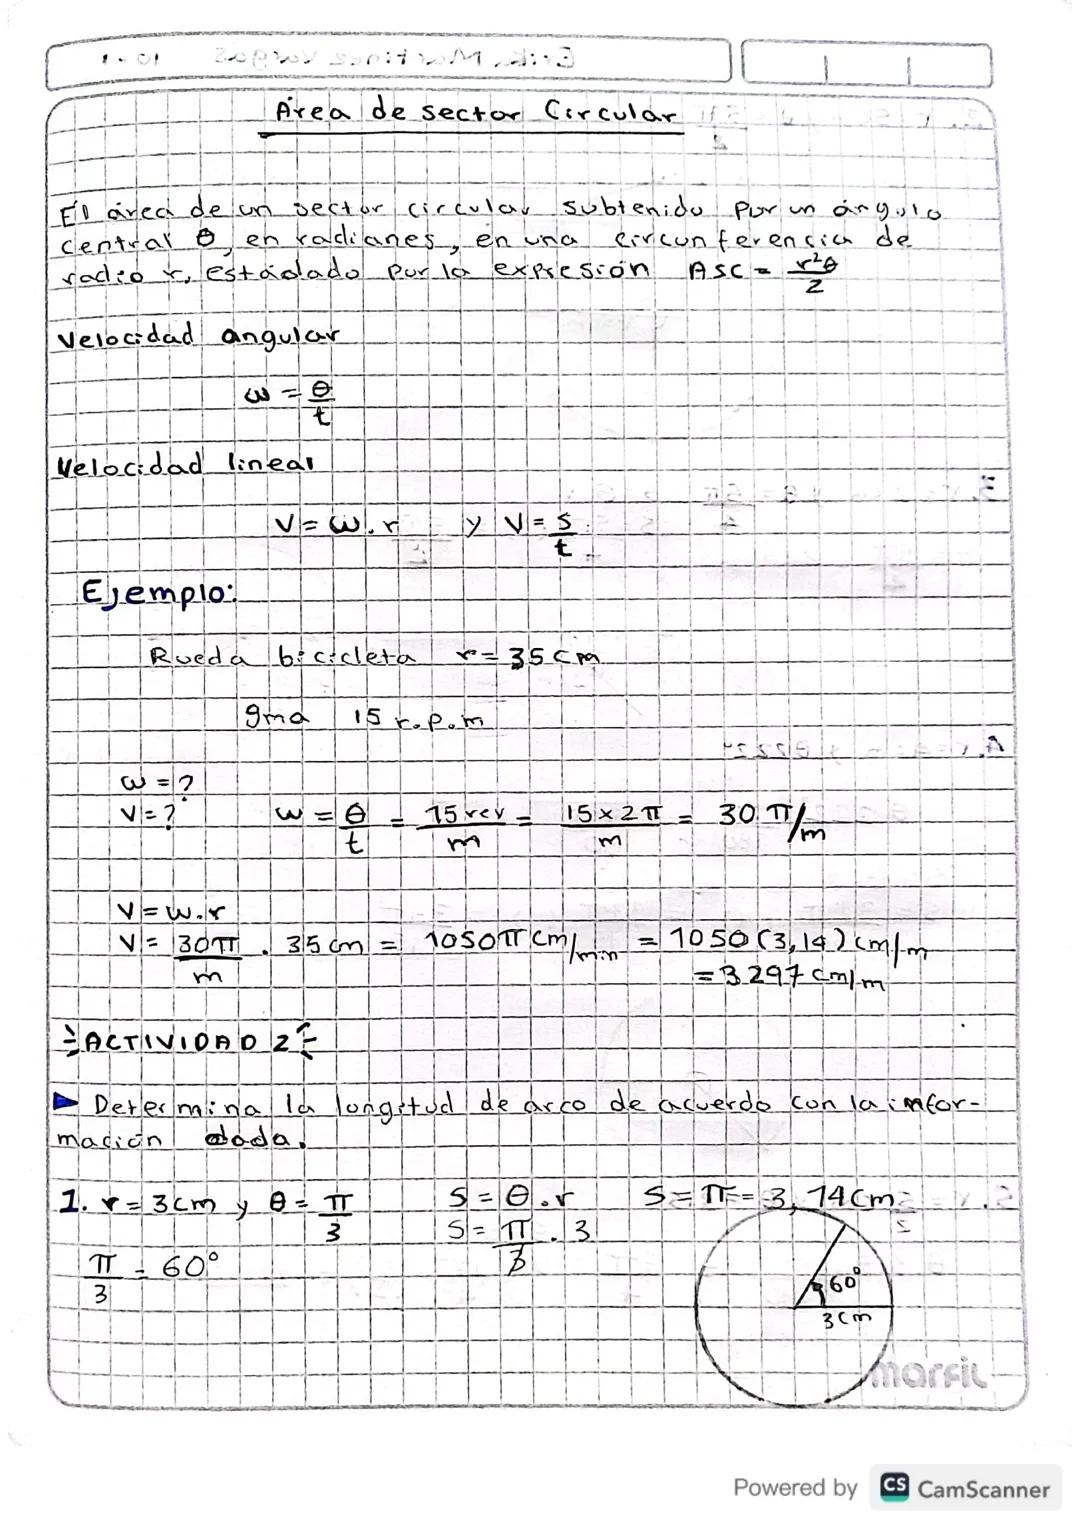 Área de sector Circular
El área de un sector circular subtenido por un ángulo
central θ, en radianes, en una circunferencia de
radio r, está dado por la expresión Asc = r²θ/2
Velocidad angular
ω = θ/t
Velocidad lineal
V = ω . r y V = s/t
Ejemplo:
Rueda bicicleta r = 35 cm
gma 15 r.p.m
ω = ?
V = ? ω = θ/t = 15 rev/m = 15 x 2π/m = 30 π/m
V = w.r
V = 30π/m . 35 cm = 1050π cm/min = 1050 (3,14) cm/m
= 3297 cm/m
ACTIVIDAD 2
Determina la longitud de arco de acuerdo con la infor-
mación dada.
1. r = 3cm y θ = π/3 S = θ . r S = π = 3,14 cm
S = π/3 . 3
π/3 = 60°
60°
3 cm
marfil
Powered by CS CamScanner